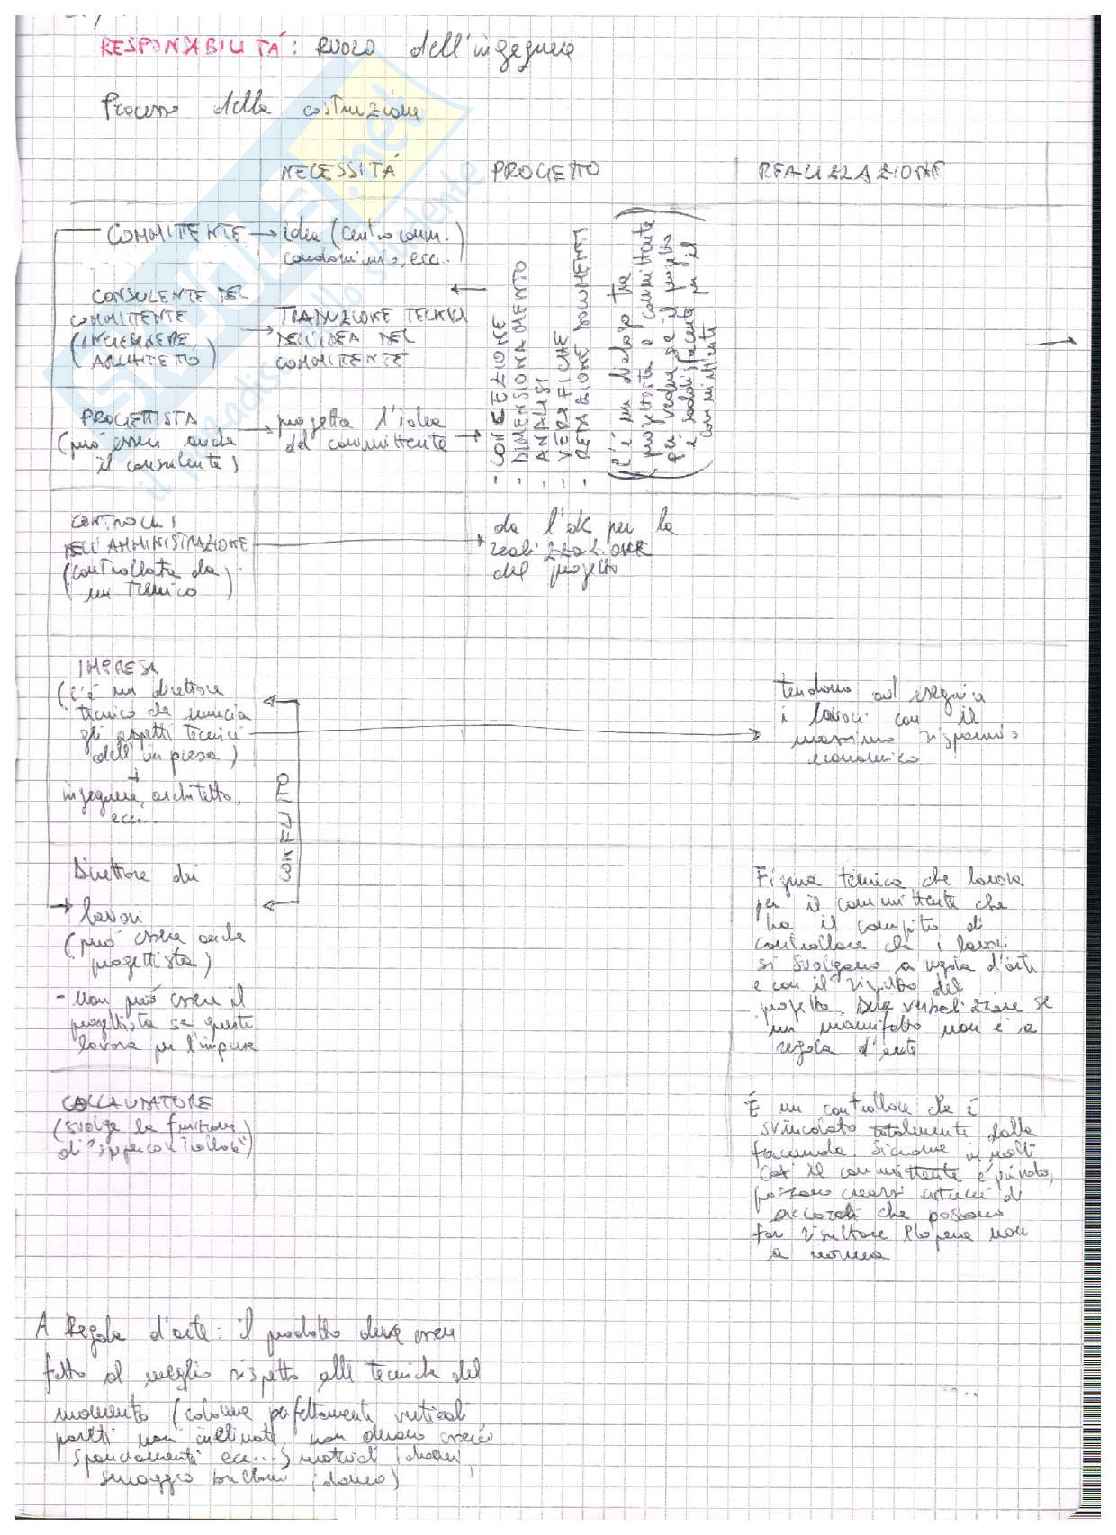 RESPONSABILITÁ: RUOLO dell'ingegnere
Processo della costruzione
NECESSITÁ PROGETTO REALIZZAZIONE
COMMITTENTE → idea (centro comm.)
condominio, ecc.
CONSULENTE DEL
COMMITENTE
(INGEGNERE
ARCHITETTO)
TRADUZIONE TECNICA
DELL'IDEA DEL
COMMITENTE
PROGETTISTA
(può essere anche
il consulente)
progetta l'idea
del committente
- CONCEZIONE
- DIMENSIONAMENTO
- ANALISI
- VERIFICHE
- REDAZIONE DOCUMENTI
(C'è un dialogo tra
progettista e committente
per vedere se il progetto
è soddisfacente per il
committente)
CONTROLLI
DELL'AMMINISTRAZIONE
(controllata da
un tecnico)
da l'ok per la
realizzazione
del progetto
IMPRESA
(c'è un direttore
tecnico che
gli aspetti tecnici
dell'impresa)
ingegnere, architetto,
ecc...
tendono ad eseguire
i lavori con il
massimo risparmio
economico
CONFLITTO
Direttore dei
lavori
(può essere anche
progettista)
- non può essere il
progettista se questi
lavora per l'impresa
Figura tecnica che lavora
per il committente che
ha il compito di
controllare che i lavori
si svolgano a regola d'arte
e con il rispetto del
progetto. Deve verbalizzare se
un manufatto non è a
regola d'arte
COLLAUDATORE
(svolge la funzione
di "supercontrollore")
È un controllore che è
svincolato totalmente dalla
faccenda, siccome in molti
casi il committente è privato,
possono crearsi di
accordi che possono
far risultare l'opera non
a norma
A Regola d'arte: il prodotto deve essere
fatto al meglio rispetto alle tecniche del
momento (colonne perfettamente verticali
pareti non inclinate, non devono esserci
spanciamenti ecc...; materiali idonei,
idoneo)